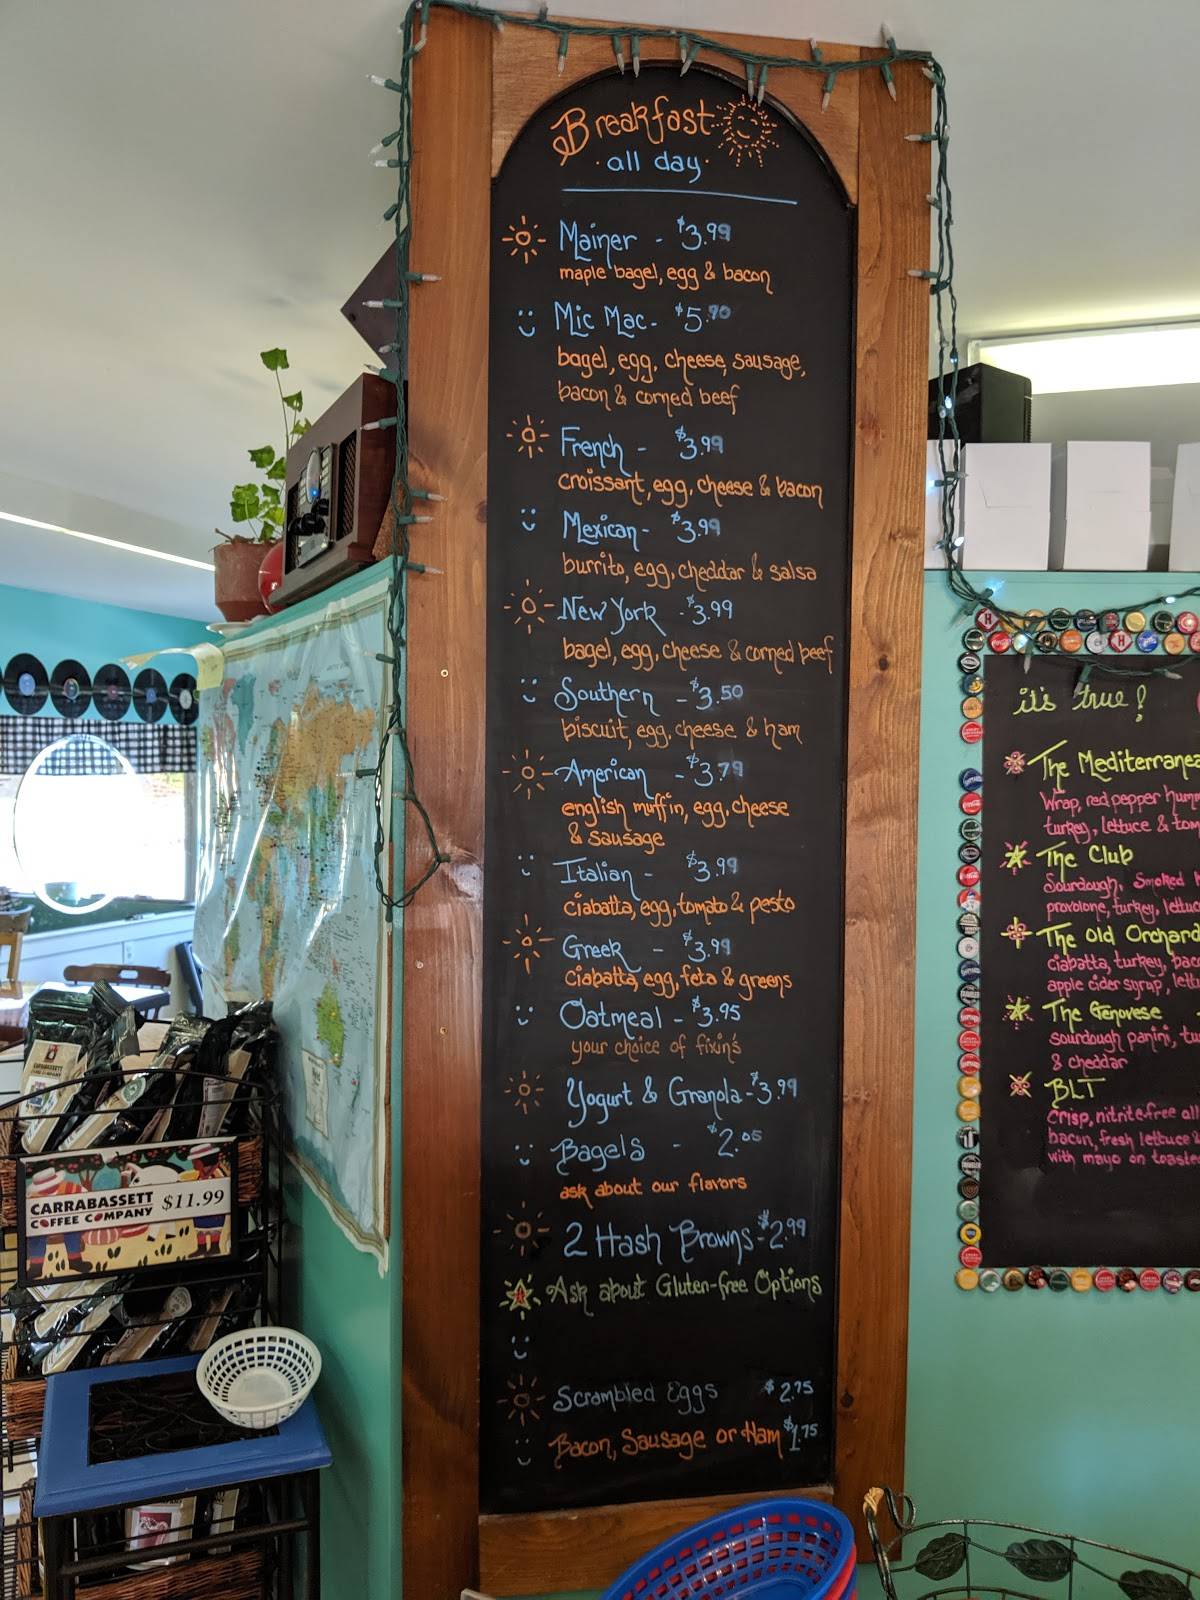 Breakfast
· all day ·
Mainer - $3.99
maple bagel, egg & bacon
Mic Mac - $5.90
bagel, egg, cheese, sausage,
bacon & corned beef
French - $3.99
croissant, egg, cheese & bacon
Mexican - $3.99
burrito, egg, cheddar & salsa
New York - $3.99
bagel, egg, cheese & corned beef
Southern - $3.50
biscuit, egg, cheese & ham
American - $3.79
english muffin, egg, cheese
& sausage
Italian - $3.99
ciabatta, egg, tomato & pesto
Greek - $3.99
ciabatta, egg, feta & greens
Oatmeal - $3.95
your choice of fixin's
Yogurt & Granola - $3.99
Bagels - $2.05
ask about our flavors
2 Hash Browns - $2.99
Ask about Gluten-free Options
Scrambled Eggs $2.75
Bacon, Sausage or Ham $1.75
it's true!
The Mediterranea
Wrap, red pepper humm
turkey, lettuce & tom
The Club
Sourdough, Smoked
provolone, turkey, lettuc
The Old Orchard
ciabatta, turkey, baco
apple cider syrup, lett
The Genovese
sourdough panini, tu
& cheddar
BLT
crisp, nitrite-free all
bacon, fresh lettuce
with mayo on toasted
CARRABASSETT
COFFEE COMPANY $11.99
CARRABASSETT